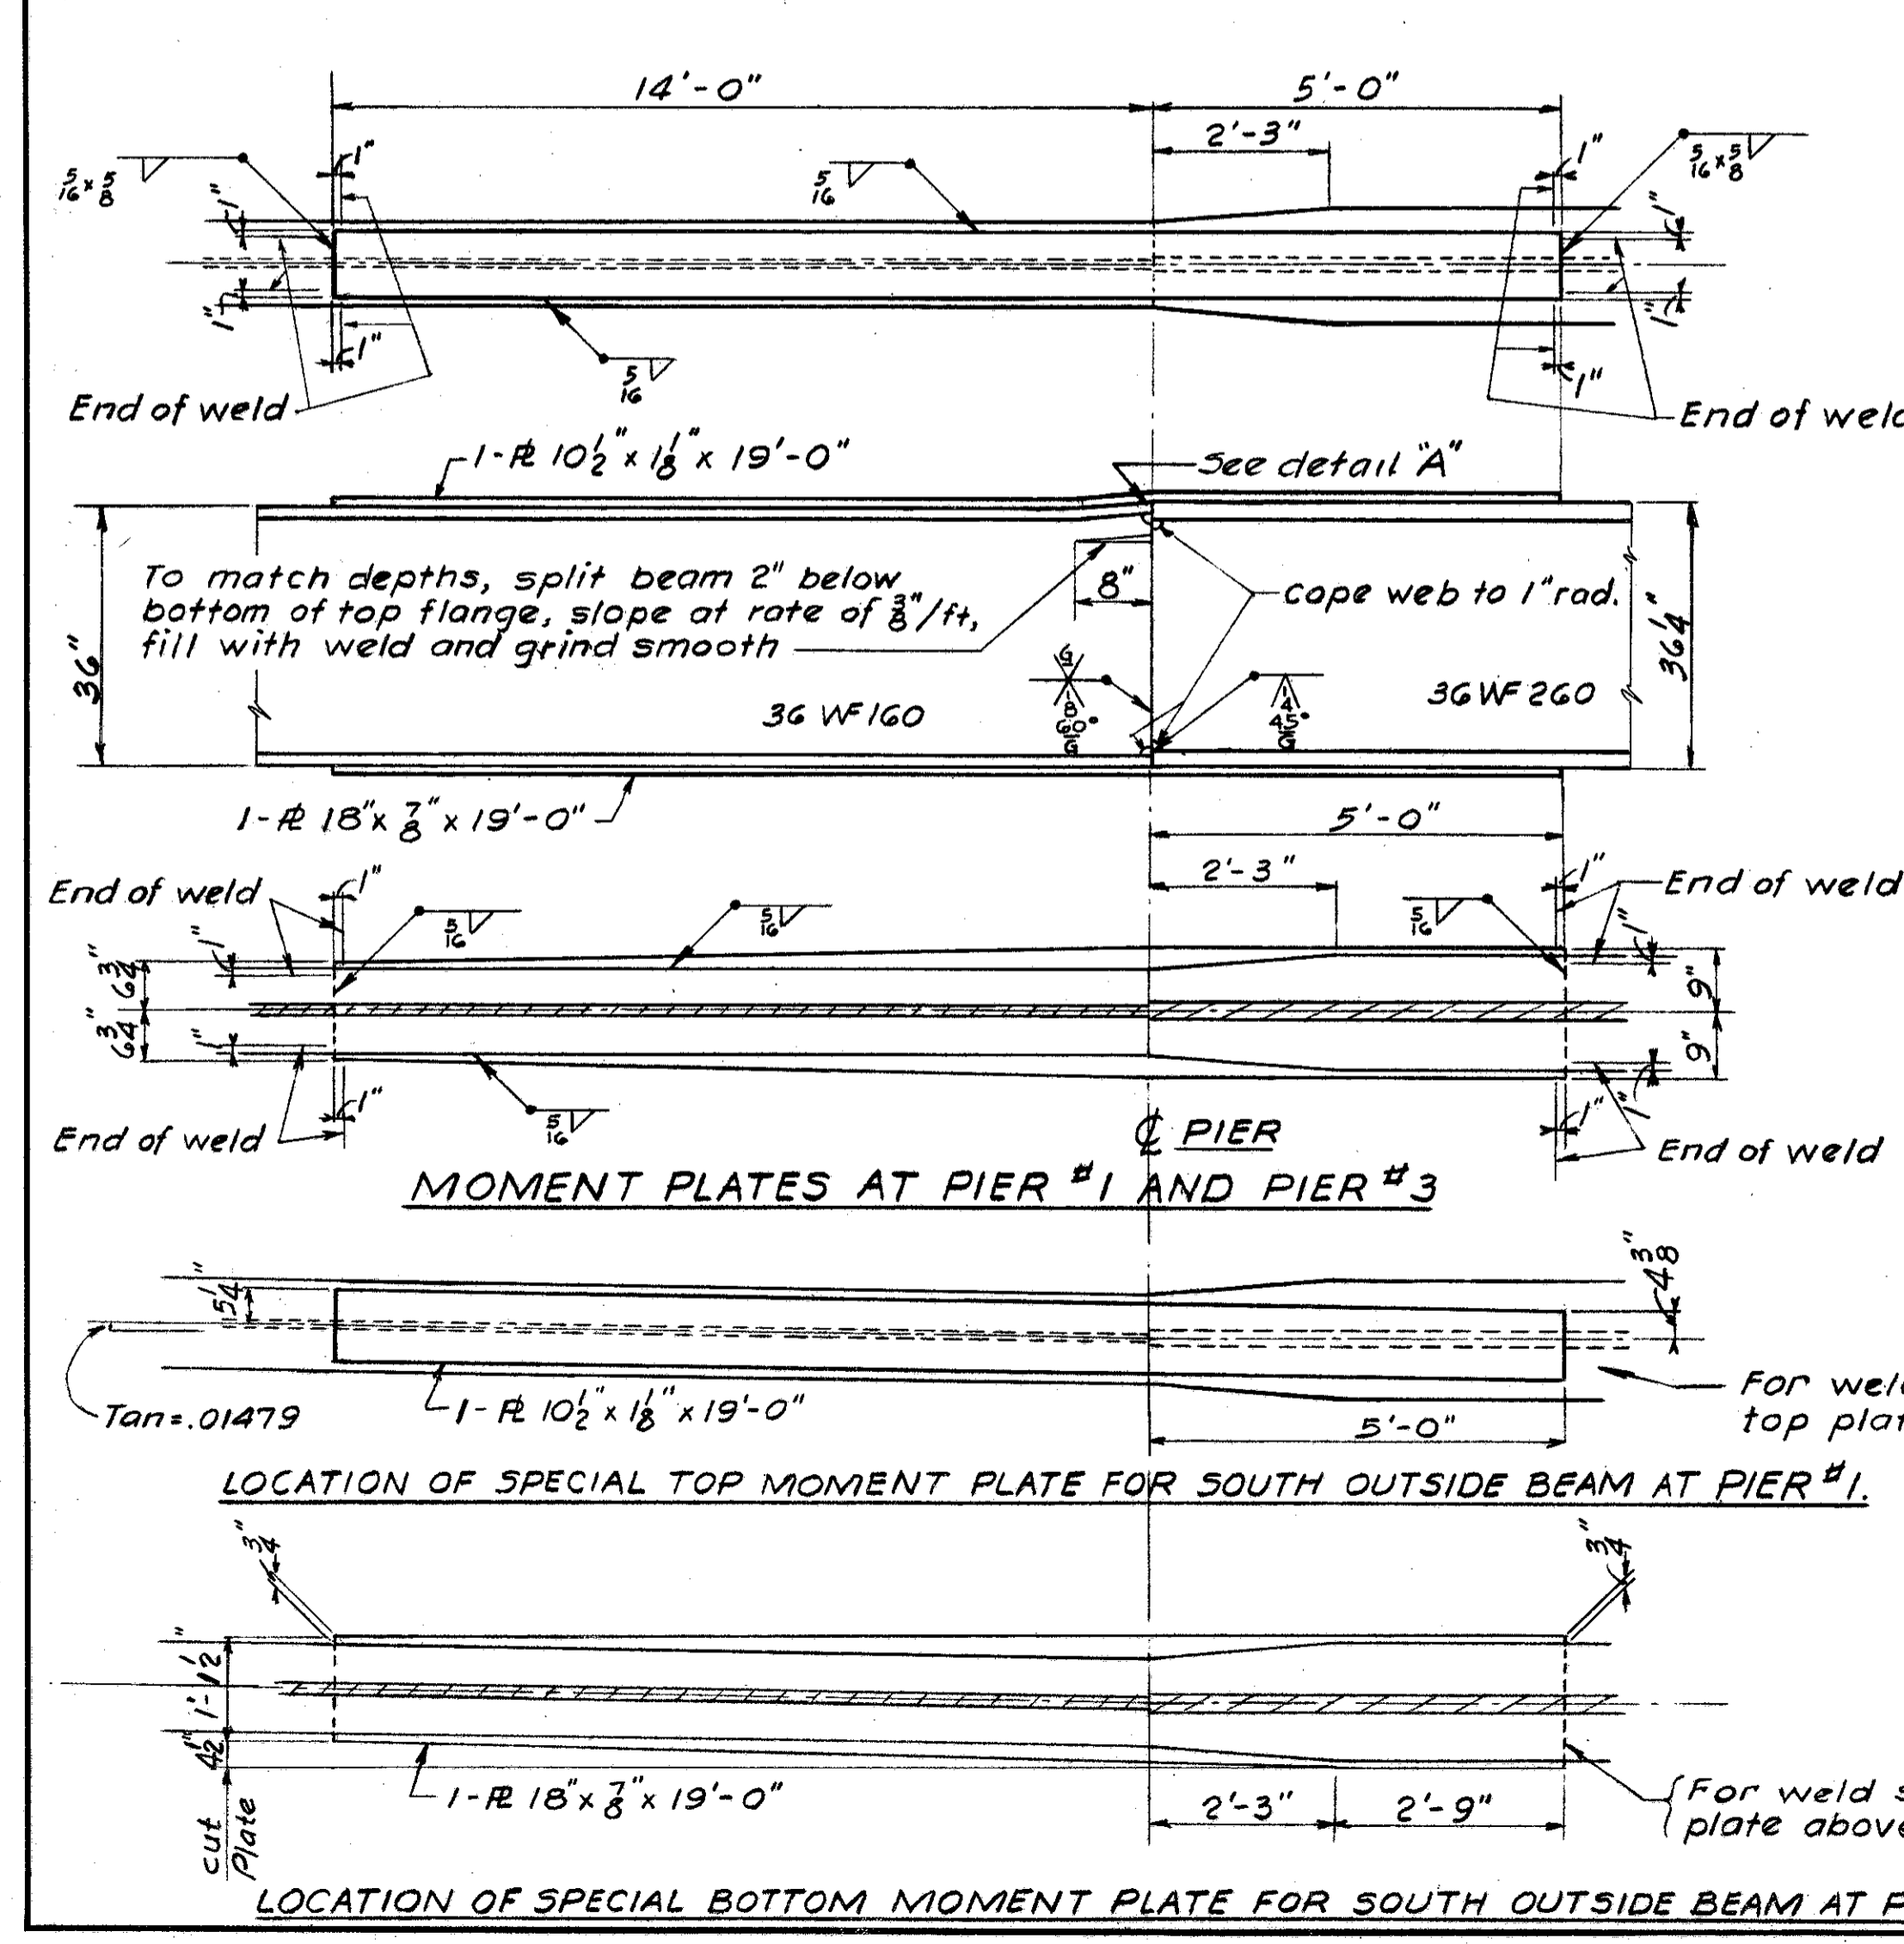 14'-0"
5'-0"
2'-3"
1"
1"
5/16 x 5/8
5/16
5/16 x 5/8
1"
1"
1"
1"
1"
1"
5/16
End of weld
End of weld
1-PL 10 1/2" x 1 1/8" x 19'-0"
See detail "A"
To match depths, split beam 2" below
bottom of top flange, slope at rate of 3/8"/ft,
fill with weld and grind smooth
8"
cope web to 1" rad.
36"
36 1/4"
36 WF 160
36 WF 260
G
1/8
60°
G
1/4
45°
G
1-PL 18" x 7/8" x 19'-0"
5'-0"
2'-3"
End of weld
1"
5/16
5/16
5/16
1"
End of weld
1"
1"
6 3/4"
6 3/4"
1"
9"
9"
1"
1"
5/16
1"
End of weld
℄ PIER
End of weld
MOMENT PLATES AT PIER #1 AND PIER #3
5 1/4"
4 3/8"
Tan=.01479
1-PL 10 1/2" x 1 1/8" x 19'-0"
5'-0"
For weld
top plat
LOCATION OF SPECIAL TOP MOMENT PLATE FOR SOUTH OUTSIDE BEAM AT PIER #1.
3/4"
3/4"
1'-1 1/2"
4 1/2"
cut
Plate
1-PL 18" x 7/8" x 19'-0"
2'-3"
2'-9"
For weld s
plate above
LOCATION OF SPECIAL BOTTOM MOMENT PLATE FOR SOUTH OUTSIDE BEAM AT P